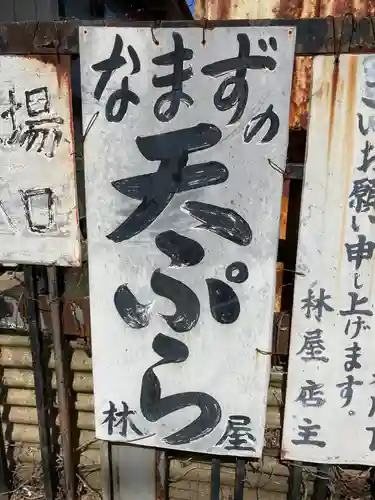 場
口
なまずの
天ぷら
林屋
お願い申し上げます
林屋店主